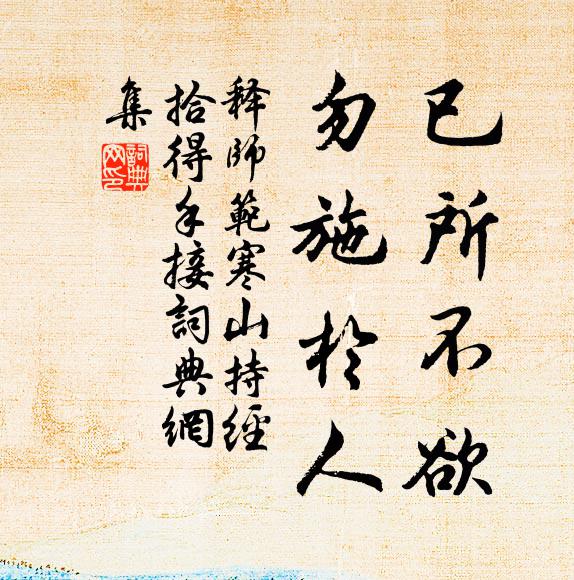 已所不欲
勿施於人
释師範寒山持經
拾得手接詞典網
集
詞典網印